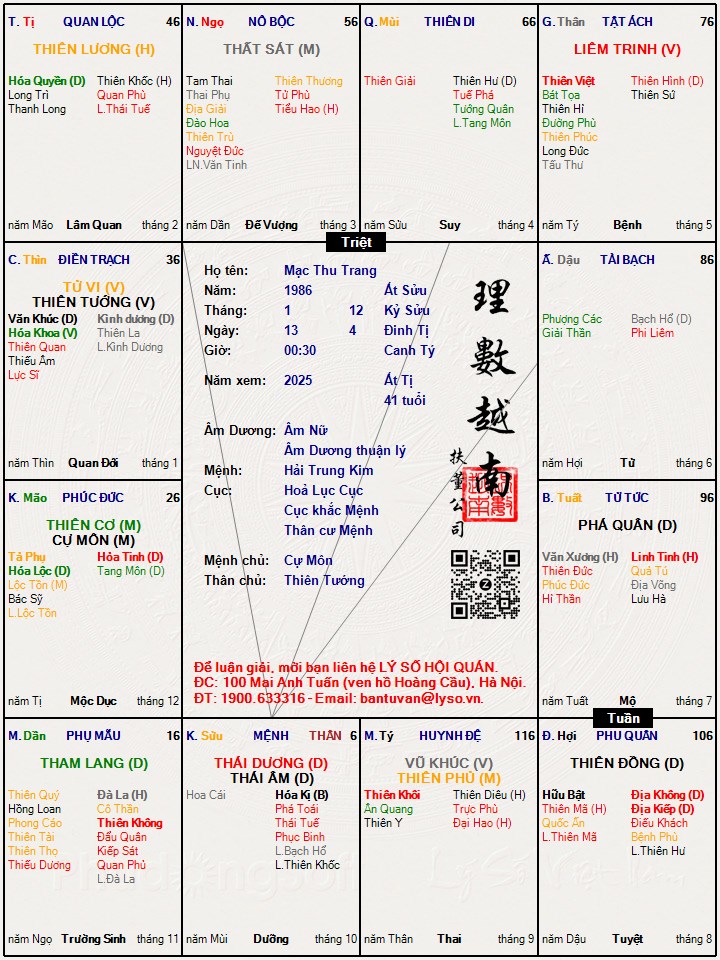 T. Tị QUAN LỘC 46
THIÊN LƯƠNG (H)
Hóa Quyền (D) Thiên Khốc (H)
Long Trì Quan Phù
Thanh Long L.Thái Tuế
năm Mão Lâm Quan tháng 2
N. Ngọ NÔ BỘC 56
THẤT SÁT (M)
Tam Thai Thiên Thương
Thai Phụ Tử Phù
Địa Giải Tiểu Hao (H)
Đào Hoa
Thiên Trù
Nguyệt Đức
LN.Văn Tinh
năm Dần Đế Vượng tháng 3
Q. Mùi THIÊN DI 66
Thiên Giải Thiên Hư (D)
Tuế Phá
Tướng Quân
L.Tang Môn
năm Sửu Suy tháng 4
G. Thân TẬT ÁCH 76
LIÊM TRINH (V)
Thiên Việt Thiên Hình (D)
Bát Tọa Thiên Sứ
Thiên Hỉ
Đường Phù
Thiên Phúc
Long Đức
Tấu Thư
năm Tý Bệnh tháng 5
Triệt
C. Thìn ĐIỀN TRẠCH 36
TỬ VI (V)
THIÊN TƯỚNG (V)
Văn Khúc (D) Kình dương (D)
Hóa Khoa (V) Thiên La
Thiên Quan L.Kình Dương
Thiếu Âm
Lực Sĩ
năm Thìn Quan Đới tháng 1
Họ tên: Mạc Thu Trang
Năm: 1986 Ất Sửu
Tháng: 1 12 Kỷ Sửu
Ngày: 13 4 Đinh Tị
Giờ: 00:30 Canh Tý
Năm xem: 2025 Ất Tị
41 tuổi
Âm Dương: Âm Nữ
Âm Dương thuận lý
Mệnh: Hải Trung Kim
Cục: Hoả Lục Cục
Cục khắc Mệnh
Thân cư Mệnh
Mệnh chủ: Cự Môn
Thân chủ: Thiên Tướng
理
數
越
南
扶
董
公
司
Để luận giải, mời bạn liên hệ LÝ SỐ HỘI QUÁN.
ĐC: 100 Mai Anh Tuấn (ven hồ Hoàng Cầu), Hà Nội.
ĐT: 1900.633316 - Email: bantuvan@lyso.vn.
Ấ. Dậu TÀI BẠCH 86
Phượng Các Bạch Hổ (D)
Giải Thần Phi Liêm
năm Hợi Tử tháng 6
K. Mão PHÚC ĐỨC 26
THIÊN CƠ (M)
CỰ MÔN (M)
Tả Phụ Hỏa Tinh (D)
Hóa Lộc (D) Tang Môn (D)
Lộc Tồn (M)
Bác Sỹ
L.Lộc Tồn
năm Tị Mộc Dục tháng 12
B. Tuất TỬ TỨC 96
PHÁ QUÂN (D)
Văn Xương (H) Linh Tinh (H)
Thiên Đức Quả Tú
Phúc Đức Địa Võng
Hỉ Thần Lưu Hà
năm Tuất Mộ tháng 7
Tuần
M. Dần PHỤ MẪU 16
THAM LANG (D)
Thiên Quý Đà La (H)
Hồng Loan Cô Thần
Phong Cáo Thiên Không
Thiên Tài Đẩu Quân
Thiên Thọ Kiếp Sát
Thiếu Dương Quan Phủ
L.Đà La
năm Ngọ Trường Sinh tháng 11
K. Sửu MỆNH THÂN 6
THÁI DƯƠNG (D)
THÁI ÂM (D)
Hoa Cái Hóa Kị (B)
Phá Toái
Thái Tuế
Phục Binh
L.Bạch Hổ
L.Thiên Khốc
năm Mùi Dưỡng tháng 10
M. Tý HUYNH ĐỆ 116
VŨ KHÚC (V)
THIÊN PHỦ (M)
Thiên Khôi Thiên Diêu (H)
Ân Quang Trực Phù
Thiên Y Đại Hao (H)
năm Thân Thai tháng 9
Đ. Hợi PHU QUÂN 106
THIÊN ĐỒNG (D)
Hữu Bật Địa Không (D)
Thiên Mã (H) Địa Kiếp (D)
Quốc Ấn Điếu Khách
L.Thiên Mã Bệnh Phù
L.Thiên Hư
năm Dậu Tuyệt tháng 8